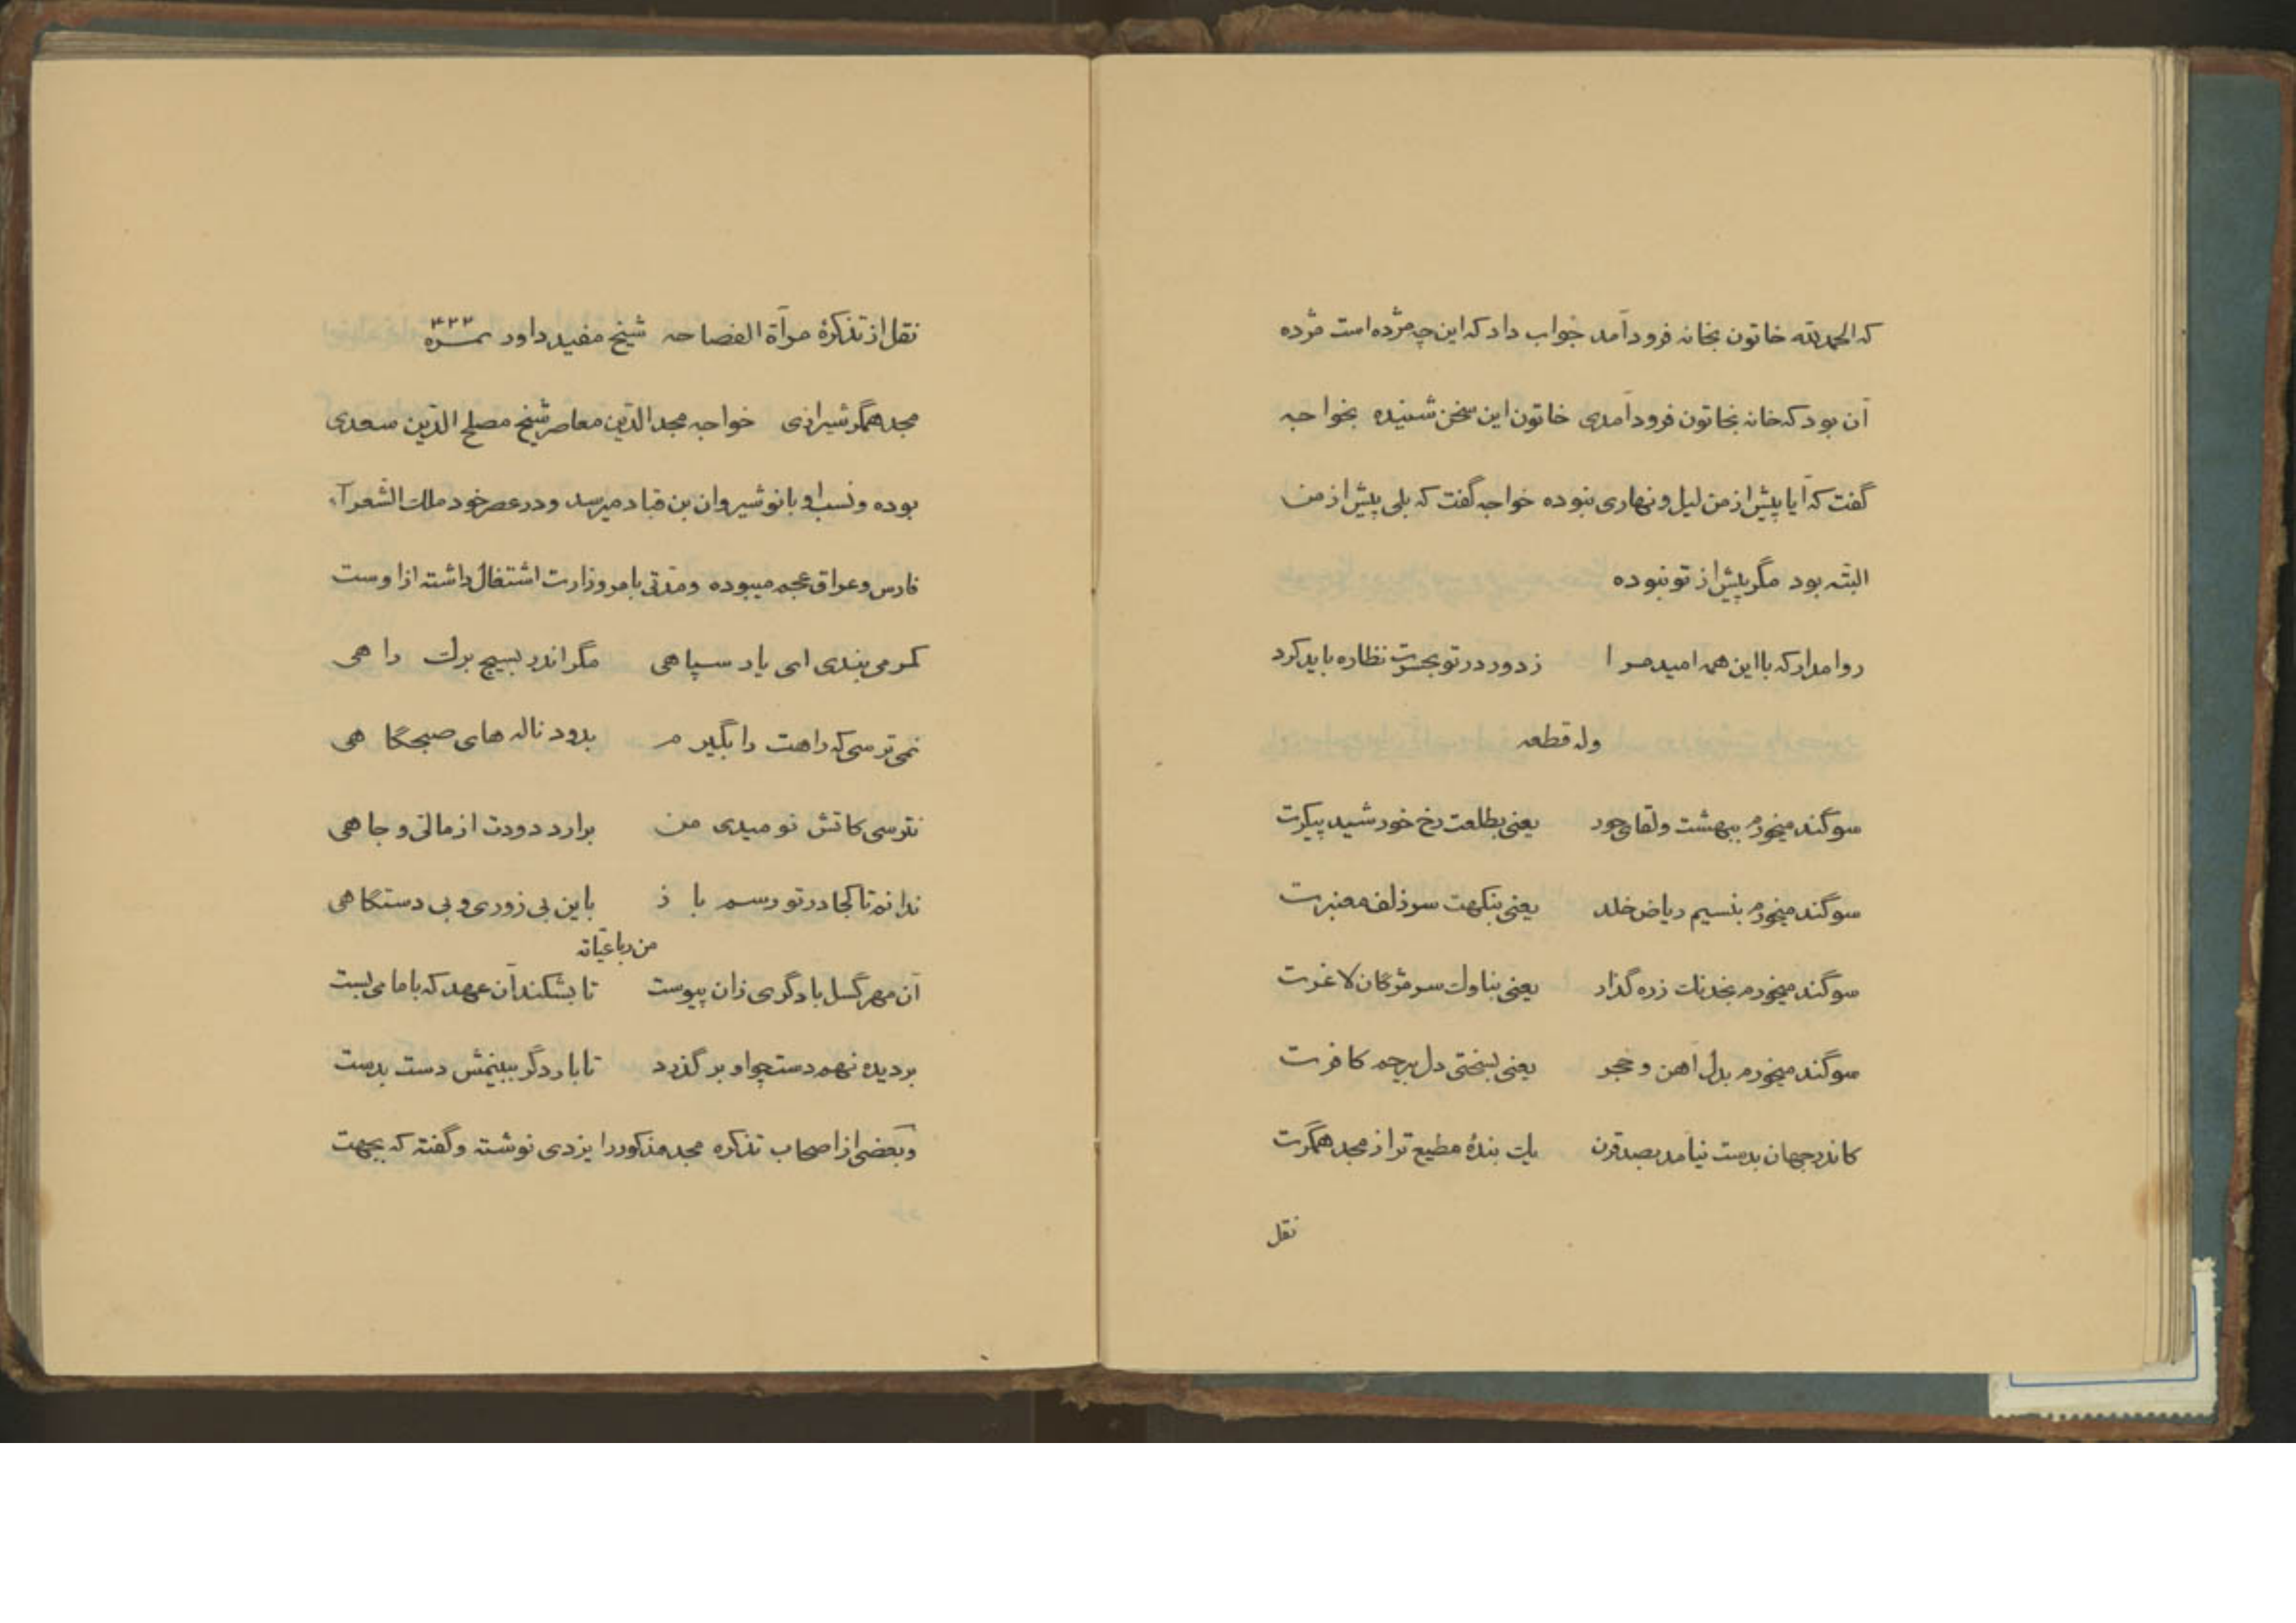 که الحمدلله خاتون بخانه فرود آمد جواب داد که این چه مژده است مژده
آن بود که خانه بخاتون فرود آمدی خاتون این سخن شنیده بخواجه
گفت که آیا پیش از من لیل و نهاری نبوده خواجه گفت که بلی پیش از من
البته بود مگر پیش از تو نبوده
روا مدار که با این همه امید مرا زدور در تو بحسرت نظاره باید کرد
وله قطعه
سوگند میخورم ببهشت و لقای حور یعنی بطلعت رخ خورشید پیکرت
سوگند میخورم بنسیم ریاض خلد یعنی بنکهت سر زلف معنبرت
سوگند میخورم بخدنک زره گذار یعنی بناوک سر مژگان لاغرت
سوگند میخورم بدل آهن و حجر یعنی بسختی دل بیرحم کافرت
کاندر جهان بدست نیامد بصد قرن یک بندهٔ مطیع تر از مجد همگرت
نقل
نقل از تذکرهٔ مرآة الفصاحه شیخ مفید داور نمره ۴۲۳
مجد همگر شیرازی خواجه مجدالدین معاصر شیخ مصلح الدین سعدی
بوده و نسب او بانوشیروان بن قباد میرسد و در عصر خود ملک الشعرآء
فارس و عراق عجم میبوده و مدتی بامر وزارت اشتغال داشته از اوست
کمر می بندی ای یار سپاهی مگر اندر بسیج برک راهی
نمی ترسی که راهت را بگیرم بدود ناله های صبحگاهی
نترسی کاتش نومیدی من برارد دودت از مالی و جاهی
ندانم تا کجا در تو رسم باز باین بی زوری و بی دستگاهی
من رباعیاته
آن مهر گسل با دگری زان پیوست تا بشکند آن عهد که با ما می بست
بر دیده نهم دست چو او بر گذرد تا با ردگر ببینمش دست بدست
و بعضی از اصحاب تذکره مجد مذکور را یزدی نوشته و گفته که بجهت